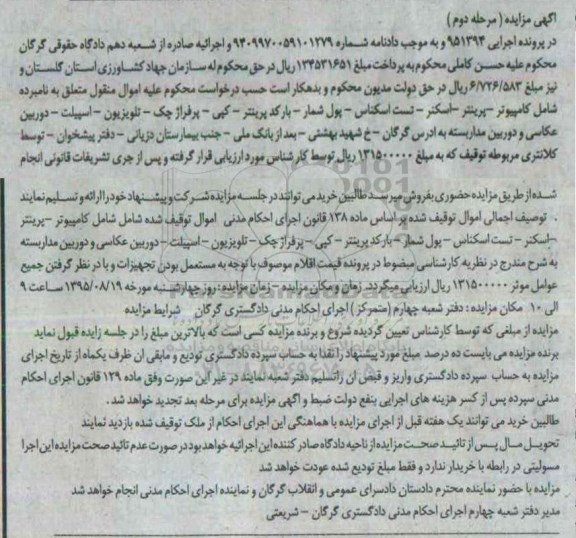 آگهی مزایده ( مرحله دوم )
در پرونده اجرایی ۹۵۱۳۹۴ و به موجب دادنامه شماره ۹۴۰۹۹۷۰۰۵۹۱۰۱۲۷۹ و اجرائیه صادره از شعبه دهم دادگاه حقوقی گرگان
محکوم علیه حسن کاملی محکوم به پرداخت مبلغ ۱۳۴۵۳۱۶۵۱ ریال در حق محکوم له سازمان جهاد کشاورزی استان گلستان و
نیز مبلغ ۶/۷۲۶/۵۸۳ ریال در حق دولت مدیون محکوم و بدهکار است حسب درخواست محکوم علیه اموال منقول متعلق به نامبرده
شامل کامپیوتر –پرینتر –اسکنر – تست اسکناس – پول شمار – بارکد پرینتر – کپی – پرفراژ چک – تلویزیون – اسپیلت – دوربین
عکاسی و دوربین مداربسته به ادرس گرگان – خ شهید بهشتی – بعد از بانک ملی – جنب بیمارستان دزیانی – دفتر پیشخوان – توسط
کلانتری مربوطه توقیف که به مبلغ ۱۳۱۵۰۰۰۰۰ ریال توسط کارشناس مورد ارزیابی قرار گرفته و پس از جری تشریفات قانونی انجام
شده از طریق مزایده حضوری بفروش میرسد طالبین خرید می توانند در جلسه مزایده شرکت و پیشنهاد خود را ارائه و تسلیم نمایند
. توصیف اجمالی اموال توقیف شده بر اساس ماده ۱۳۸ قانون اجرای احکام مدنی اموال توقیف شده شامل شامل کامپیوتر –پرینتر
–اسکنر – تست اسکناس – پول شمار – بارکد پرینتر – کپی – پرفراژ چک – تلویزیون – اسپیلت – دوربین عکاسی و دوربین مداربسته
به شرح مندرج در نظریه کارشناسی مضبوط در پرونده قیمت اقلام موصوف با توجه به مستعمل بودن تجهیزات و با در نظر گرفتن جمیع
عوامل موثر ۱۳۱۵۰۰۰۰۰ ریال ارزیابی میگردد. زمان و مکان مزایده – زمان مزایده: روز چهارشنبه مورخه ۱۳۹۵/۰۸/۱۹ ساعت ۹
الی ۱۰ مکان مزایده : دفتر شعبه چهارم (متمرکز ) اجرای احکام مدنی دادگستری گرگان شرایط مزایده
مزایده از مبلغی که توسط کارشناس تعیین گردیده شروع و برنده مزایده کسی است که بالاترین مبلغ را در جلسه زایده قبول نماید
برنده مزایده می بایست ده درصد مبلغ مورد پیشنهاد را نقدا به حساب سپرده دادگستری تودیع و مابقی ان ظرف یکماه از تاریخ اجرای
مزایده به حساب سپرده دادگستری واریز و قبض ان را تسلیم دفتر شعبه نمایند در غیر این صورت وفق ماده ۱۲۹ قانون اجرای احکام
مدنی سپرده پس از کسر هزینه های اجرایی بنفع دولت ضبط و اگهی مزایده برای مرحله بعد تجدید خواهد شد .
طالبین خرید می توانند یک هفته قبل از اجرای مزایده با هماهنگی این اجرای احکام از ملک توقیف شده بازدید نمایند
تحویل مال پس از تائید صحت مزایده از ناحیه دادگاه صادر کننده این اجرائیه خواهد بود در صورت عدم تائید صحت مزایده این اجرا
مسولیتی در رابطه با خریدار ندارد و فقط مبلغ تودیع شده عودت خواهد شد
مزایده با حضور نماینده محترم دادستان دادسرای عمومی و انقلاب گرگان و نماینده اجرای احکام مدنی انجام خواهد شد
مدیر دفتر شعبه چهارم اجرای احکام مدنی دادگستری گرگان – شریعتی